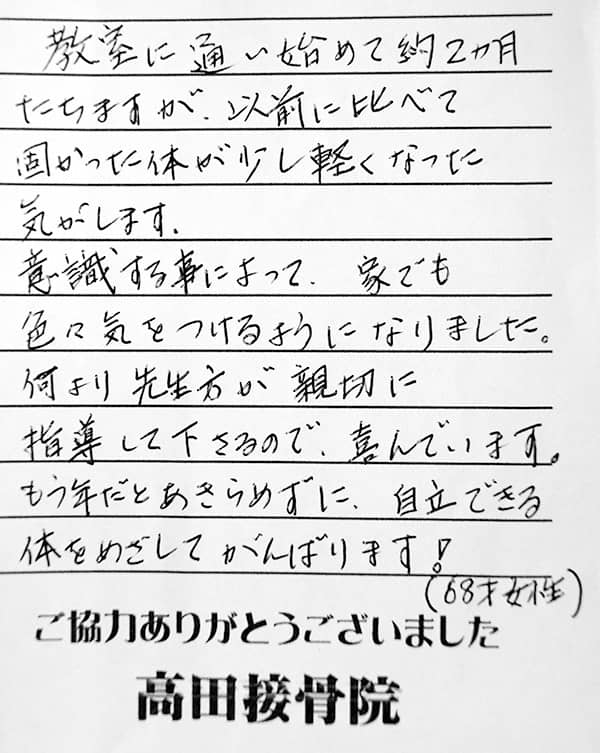 教室に通い始めて約2カ月
たちますが、以前に比べて
固かった体が少し軽くなった
気がします。
意識する事によって、家でも
色々気をつけるようになりました。
何より先生方が親切に
指導して下さるので、喜んでいます。
もう年だとあきらめずに、自立できる
体をめざしてがんばります!
(68才女性)
ご協力ありがとうございました
高田接骨院